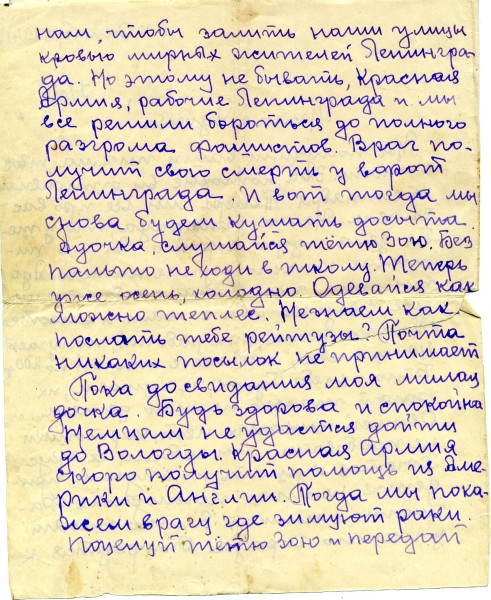 нам, чтобы залить наши улицы
кровью мирных жителей Ленингра-
да. Но этому не бывать, Красная
Армия, рабочие Ленинграда и мы
все решили бороться до полного
разгрома фашистов. Враг по-
лучит свою смерть у ворот
Ленинграда. И вот тогда мы
снова будем кушать досыта.
дочка, слушайся тётю Зою. Без
пальто не ходи в школу. Теперь
уже осень, холодно. Одевайся как
можно теплее. Незнаем как
послать тебе рейтузы? Почта
никаких посылок не принимает
Пока до свидания моя милая
дочка. Будь здорова и спокойна
Немцам не удастся дойти
до Вологды. Красная Армия
скоро получит помощь из Аме-
рики и Англии. Тогда мы пока-
жем врагу где зимуют раки.
Поцелуй тётю Зою и передай